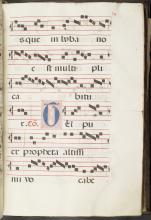 sque in iuba no
e st multi pli
ca bitu
r. Et pu
er propheta altissi
mi vo cabe